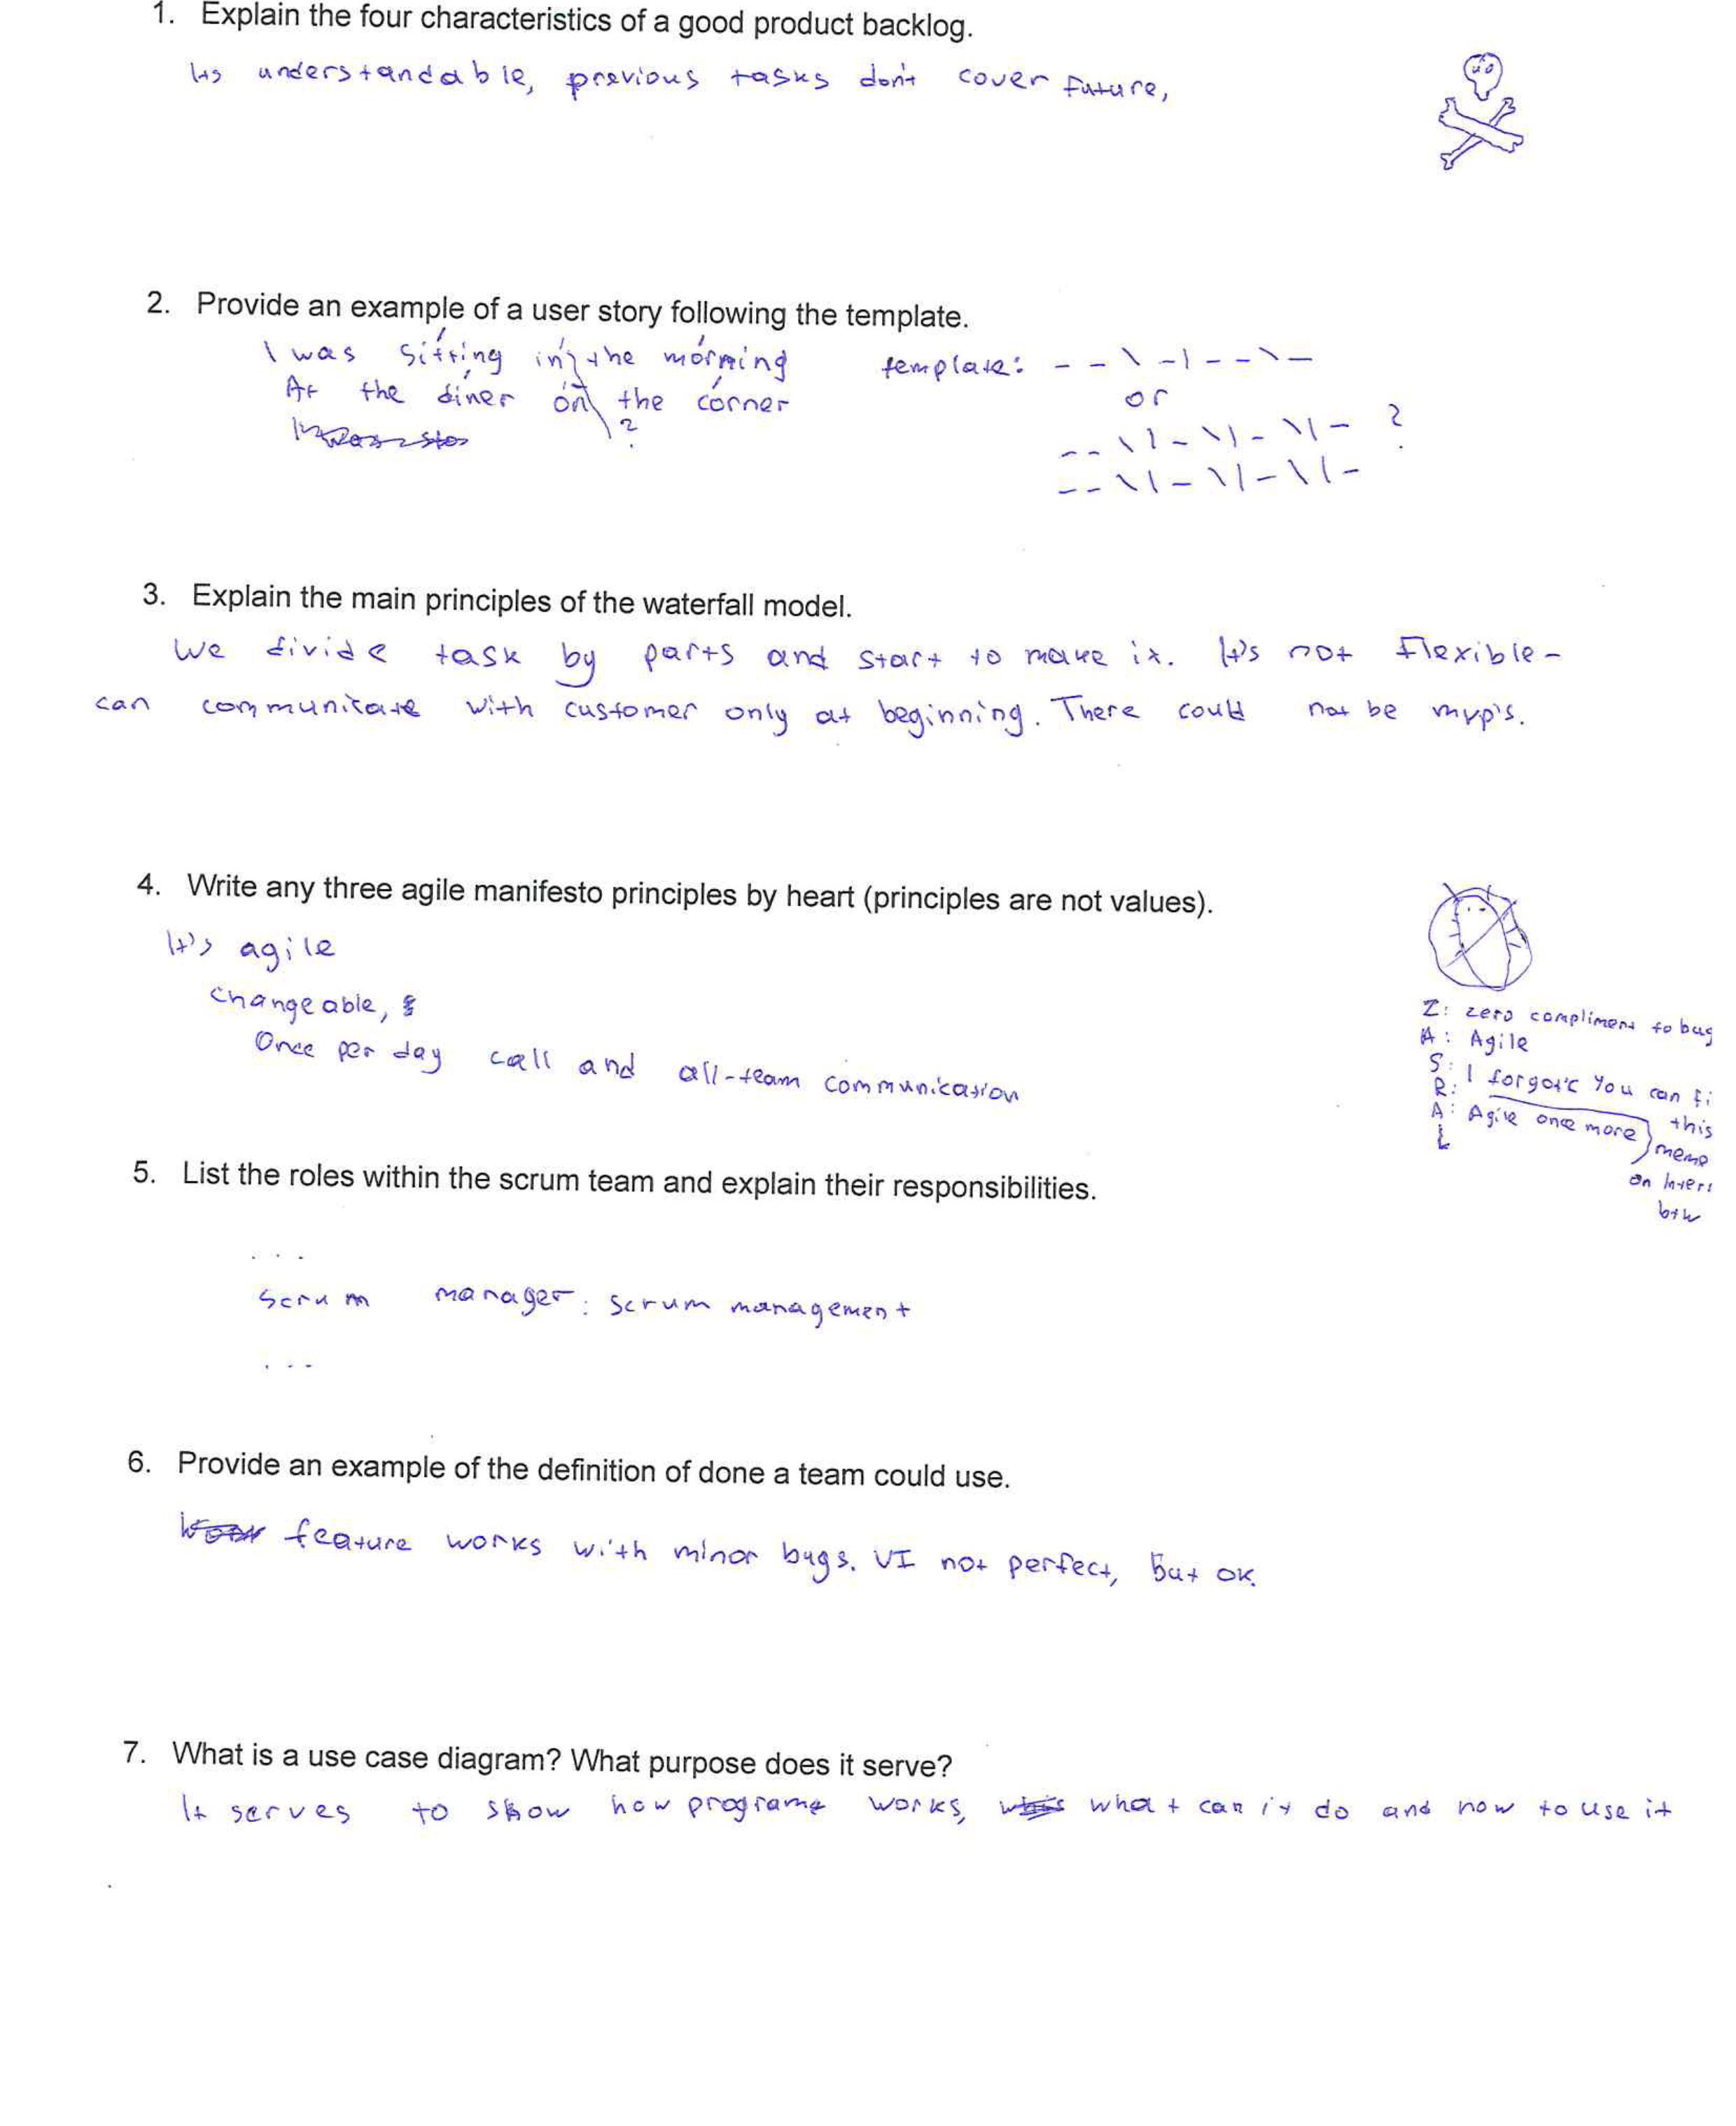 1. Explain the four characteristics of a good product backlog.
Its understandable, previous tasks don't cover future,
2. Provide an example of a user story following the template.
I was sitting in the morning template: - - \ - | - - \ -
At the diner on the corner or
? - - \ | - \ | - \ | - ?
- - \ | - \ | - \ | -
3. Explain the main principles of the waterfall model.
We divide task by parts and start to make it. It's not flexible -
can communicate with customer only at beginning. There could not be mvp's.
4. Write any three agile manifesto principles by heart (principles are not values).
It's agile
changeable,
Once per day call and all-team communication
Z: zero compliment to bug
A: Agile
S: I forgot: You can fi
R: this
A: Agile once more meme
L on
btw
5. List the roles within the scrum team and explain their responsibilities.
...
scrum manager: scrum management
...
6. Provide an example of the definition of done a team could use.
feature works with minor bugs. UI not perfect, But ok.
7. What is a use case diagram? What purpose does it serve?
It serves to show how programe works, what can it do and how to use it